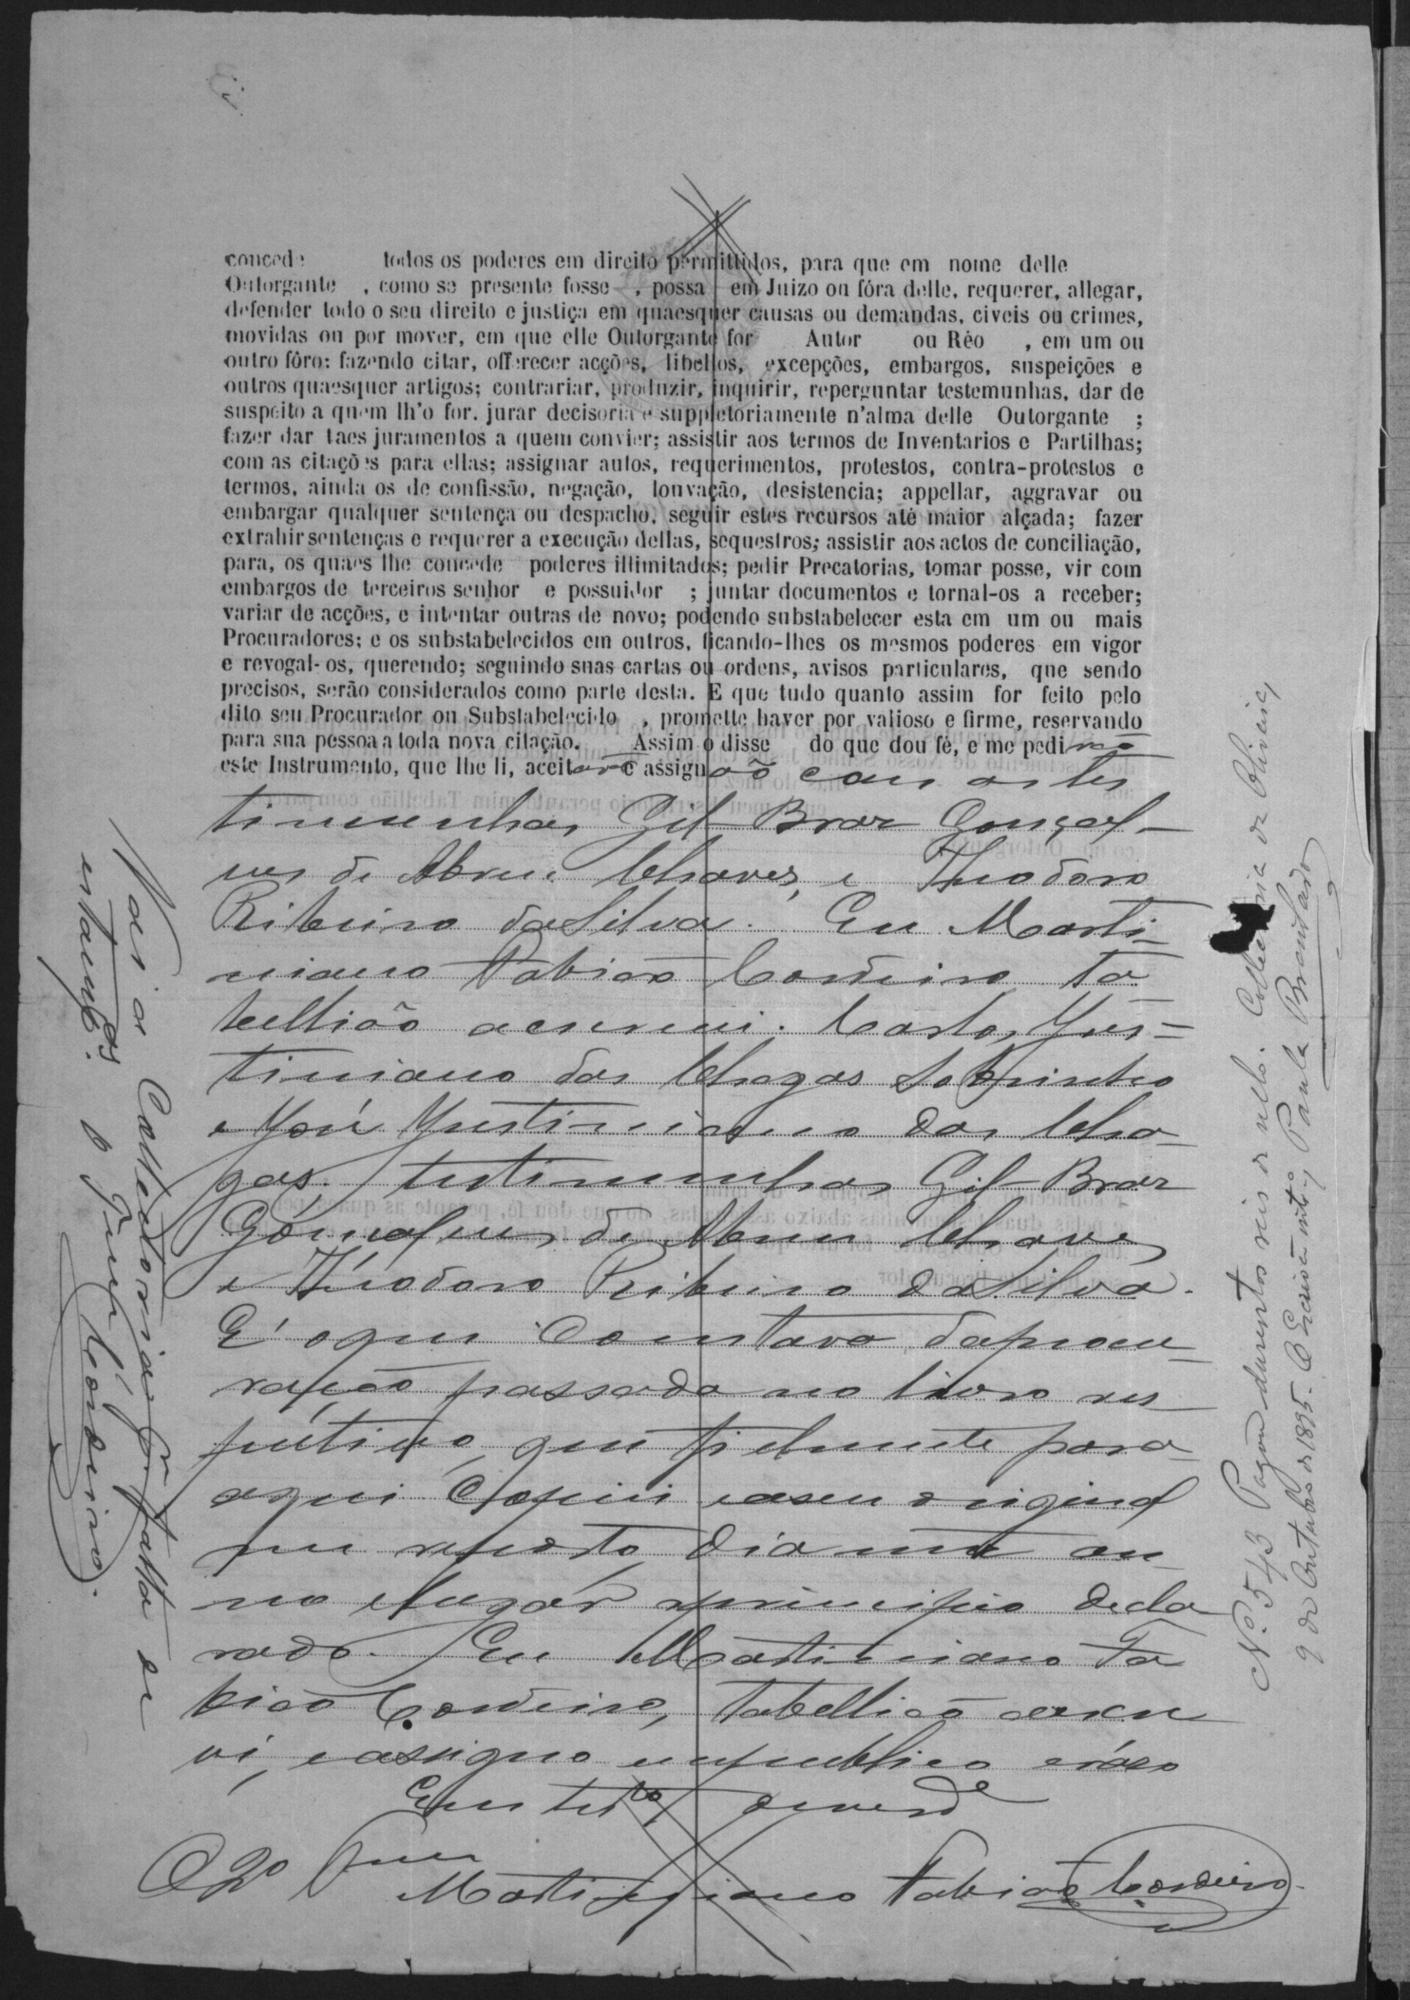 concede todos os poderes em direito permittidos, para que em nome delle
Outorgante , como se presente fosse , possa em Juizo ou fóra delle, requerer, allegar,
defender todo o seu direito e justiça em quaesquer causas ou demandas, civeis ou crimes,
movidas ou por mover, em que elle Outorgante for Autor ou Réo , em um ou
outro fôro: fazendo citar, offerecer acções, libellos, excepções, embargos, suspeições e
outros quaesquer artigos; contrariar, produzir, inquirir, reperguntar testemunhas, dar de
suspeito a quem lh'o for. jurar decisoria e suppletoriamente n'alma delle Outorgante ;
fazer dar taes juramentos a quem convier; assistir aos termos de Inventarios e Partilhas;
com as citações para ellas; assignar autos, requerimentos, protestos, contra-protestos e
termos, ainda os de confissão, negação, louvação, desistencia; appellar, aggravar ou
embargar qualquer sentença ou despacho, seguir estes recursos até maior alçada; fazer
extrahir sentenças e requerer a execução dellas, sequestros; assistir aos actos de conciliação,
para, os quaes lhe concede poderes illimitados; pedir Precatorias, tomar posse, vir com
embargos de terceiros senhor e possuidor ; juntar documentos e tornal-os a receber;
variar de acções, e intentar outras de novo; podendo substabelecer esta em um ou mais
Procuradores; e os substabelecidos em outros, ficando-lhes os mesmos poderes em vigor
e revogal-os, querendo; seguindo suas cartas ou ordens, avisos particulares, que sendo
precisos, serão considerados como parte desta. E que tudo quanto assim for feito pelo
dito seu Procurador ou Substabelecido , promette haver por valioso e firme, reservando
para sua pessoa a toda nova citação. Assim o disse do que dou fé, e me pedi
este Instrumento, que lhe li, aceitarão e assignaõ com as tes
timunhas Gil Braz Gonçal-
ves de Abreu Chaves, e Theodoro
Ribeiro da Silva. Eu Marti-
niano Fabiaõ Cordeiro ta-
belliaõ escrevi. Carlos Jus=
tiniano das Chagas Sobrinho
e José Justiniano das Cha-
gas. Testimunhas Gil Braz
Gonçalves de Abreu Chaves
e Theodoro Ribeiro da Silva.
E' o que constava da procu-
raçaõ passada no livro res-
pectivo, que fielmente para
aqui copiei e a seu original
me reporto, dia mez an
no e lugar a principio decla
rado. Eu Martiniano Fa
biaõ Cordeiro, tabelliaõ escre
vi, e assigno em publico e razo
Em testº de verdᵉ
O 2º Tam
Martiniano Fabiaõ Cordeiro.
Vai a Collectoria pr falta de
estampas. O Tam Cordeiro.
Nº. 543 Pagou duzentos reis de sello. Collectoria de Oliveira,
9 de Outubro de 1895. O Escrivaõ intº, Paula Brandaõ